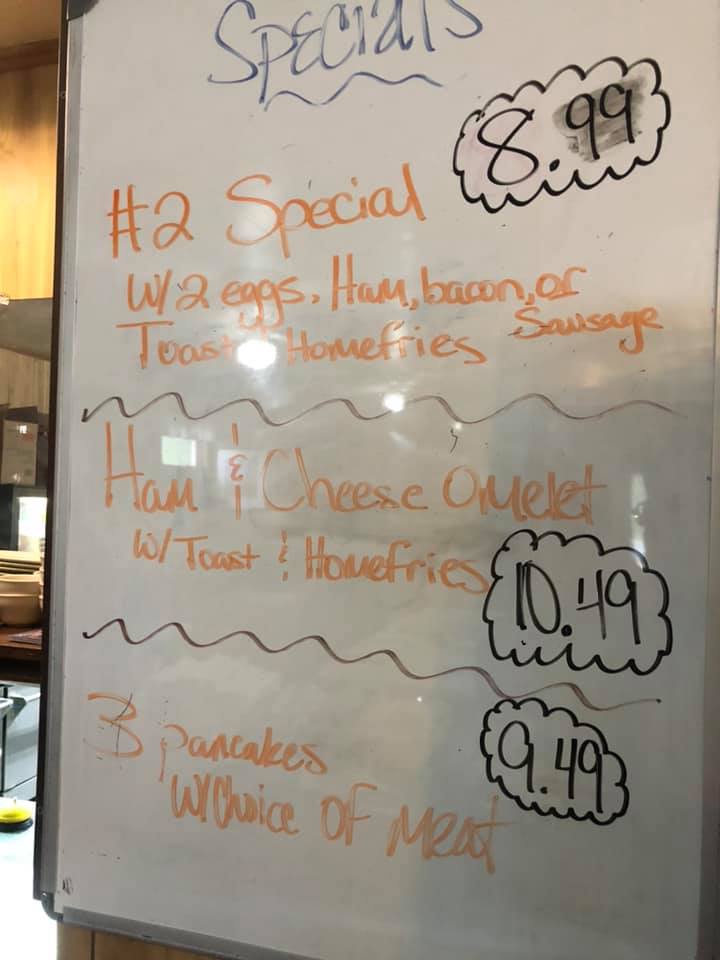 Specials
8.99
#2 Special
W/2 eggs, Ham, bacon, or
Sausage
Toast & Homefries
Ham & Cheese Omelet
W/Toast & Homefries
10.49
3 pancakes
9.49
W/Choice OF Meat